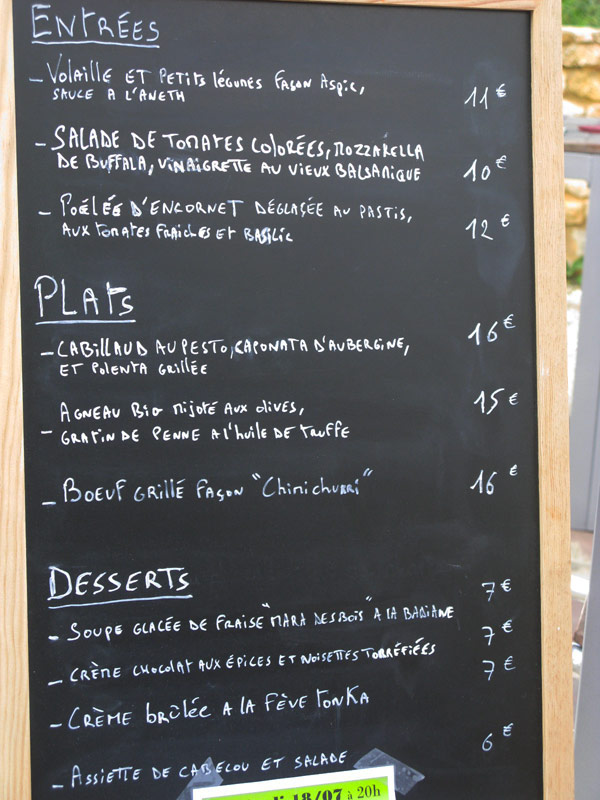 ENTRÉES
- VOLAILLE ET PETITS LÉGUMES FAÇON ASPIC,
SAUCE A L'ANETH 11 €
- SALADE DE TOMATES COLORÉES, MOZZARELLA
DE BUFFALA, VINAIGRETTE AU VIEUX BALSAMIQUE 10 €
- POÊLÉE D'ENCORNET DÉGLAÇÉE AU PASTIS,
AUX TOMATES FRAICHES ET BASILIC 12 €
PLATS
- CABILLAUD AU PESTO, CAPONATA D'AUBERGINE, 16 €
ET POLENTA GRILLÉE
AGNEAU BIO MIJOTÉ AUX OLIVES, 15 €
- GRATIN DE PENNE A L'HUILE DE TRUFFE
- BOEUF GRILLÉ FAÇON "CHIMICHURRI" 16 €
DESSERTS
- SOUPE GLACÉE DE FRAISE "MARA DESBOIS" A LA BADIANE 7 €
- CRÈME CHOCOLAT AUX ÉPICES ET NOISETTES TORRÉFIÉES 7 €
- CRÈME BRÛLÉE A LA FÈVE TONKA 7 €
- ASSIETTE DE CABECOU ET SALADE 6 €
18/07 à 20h